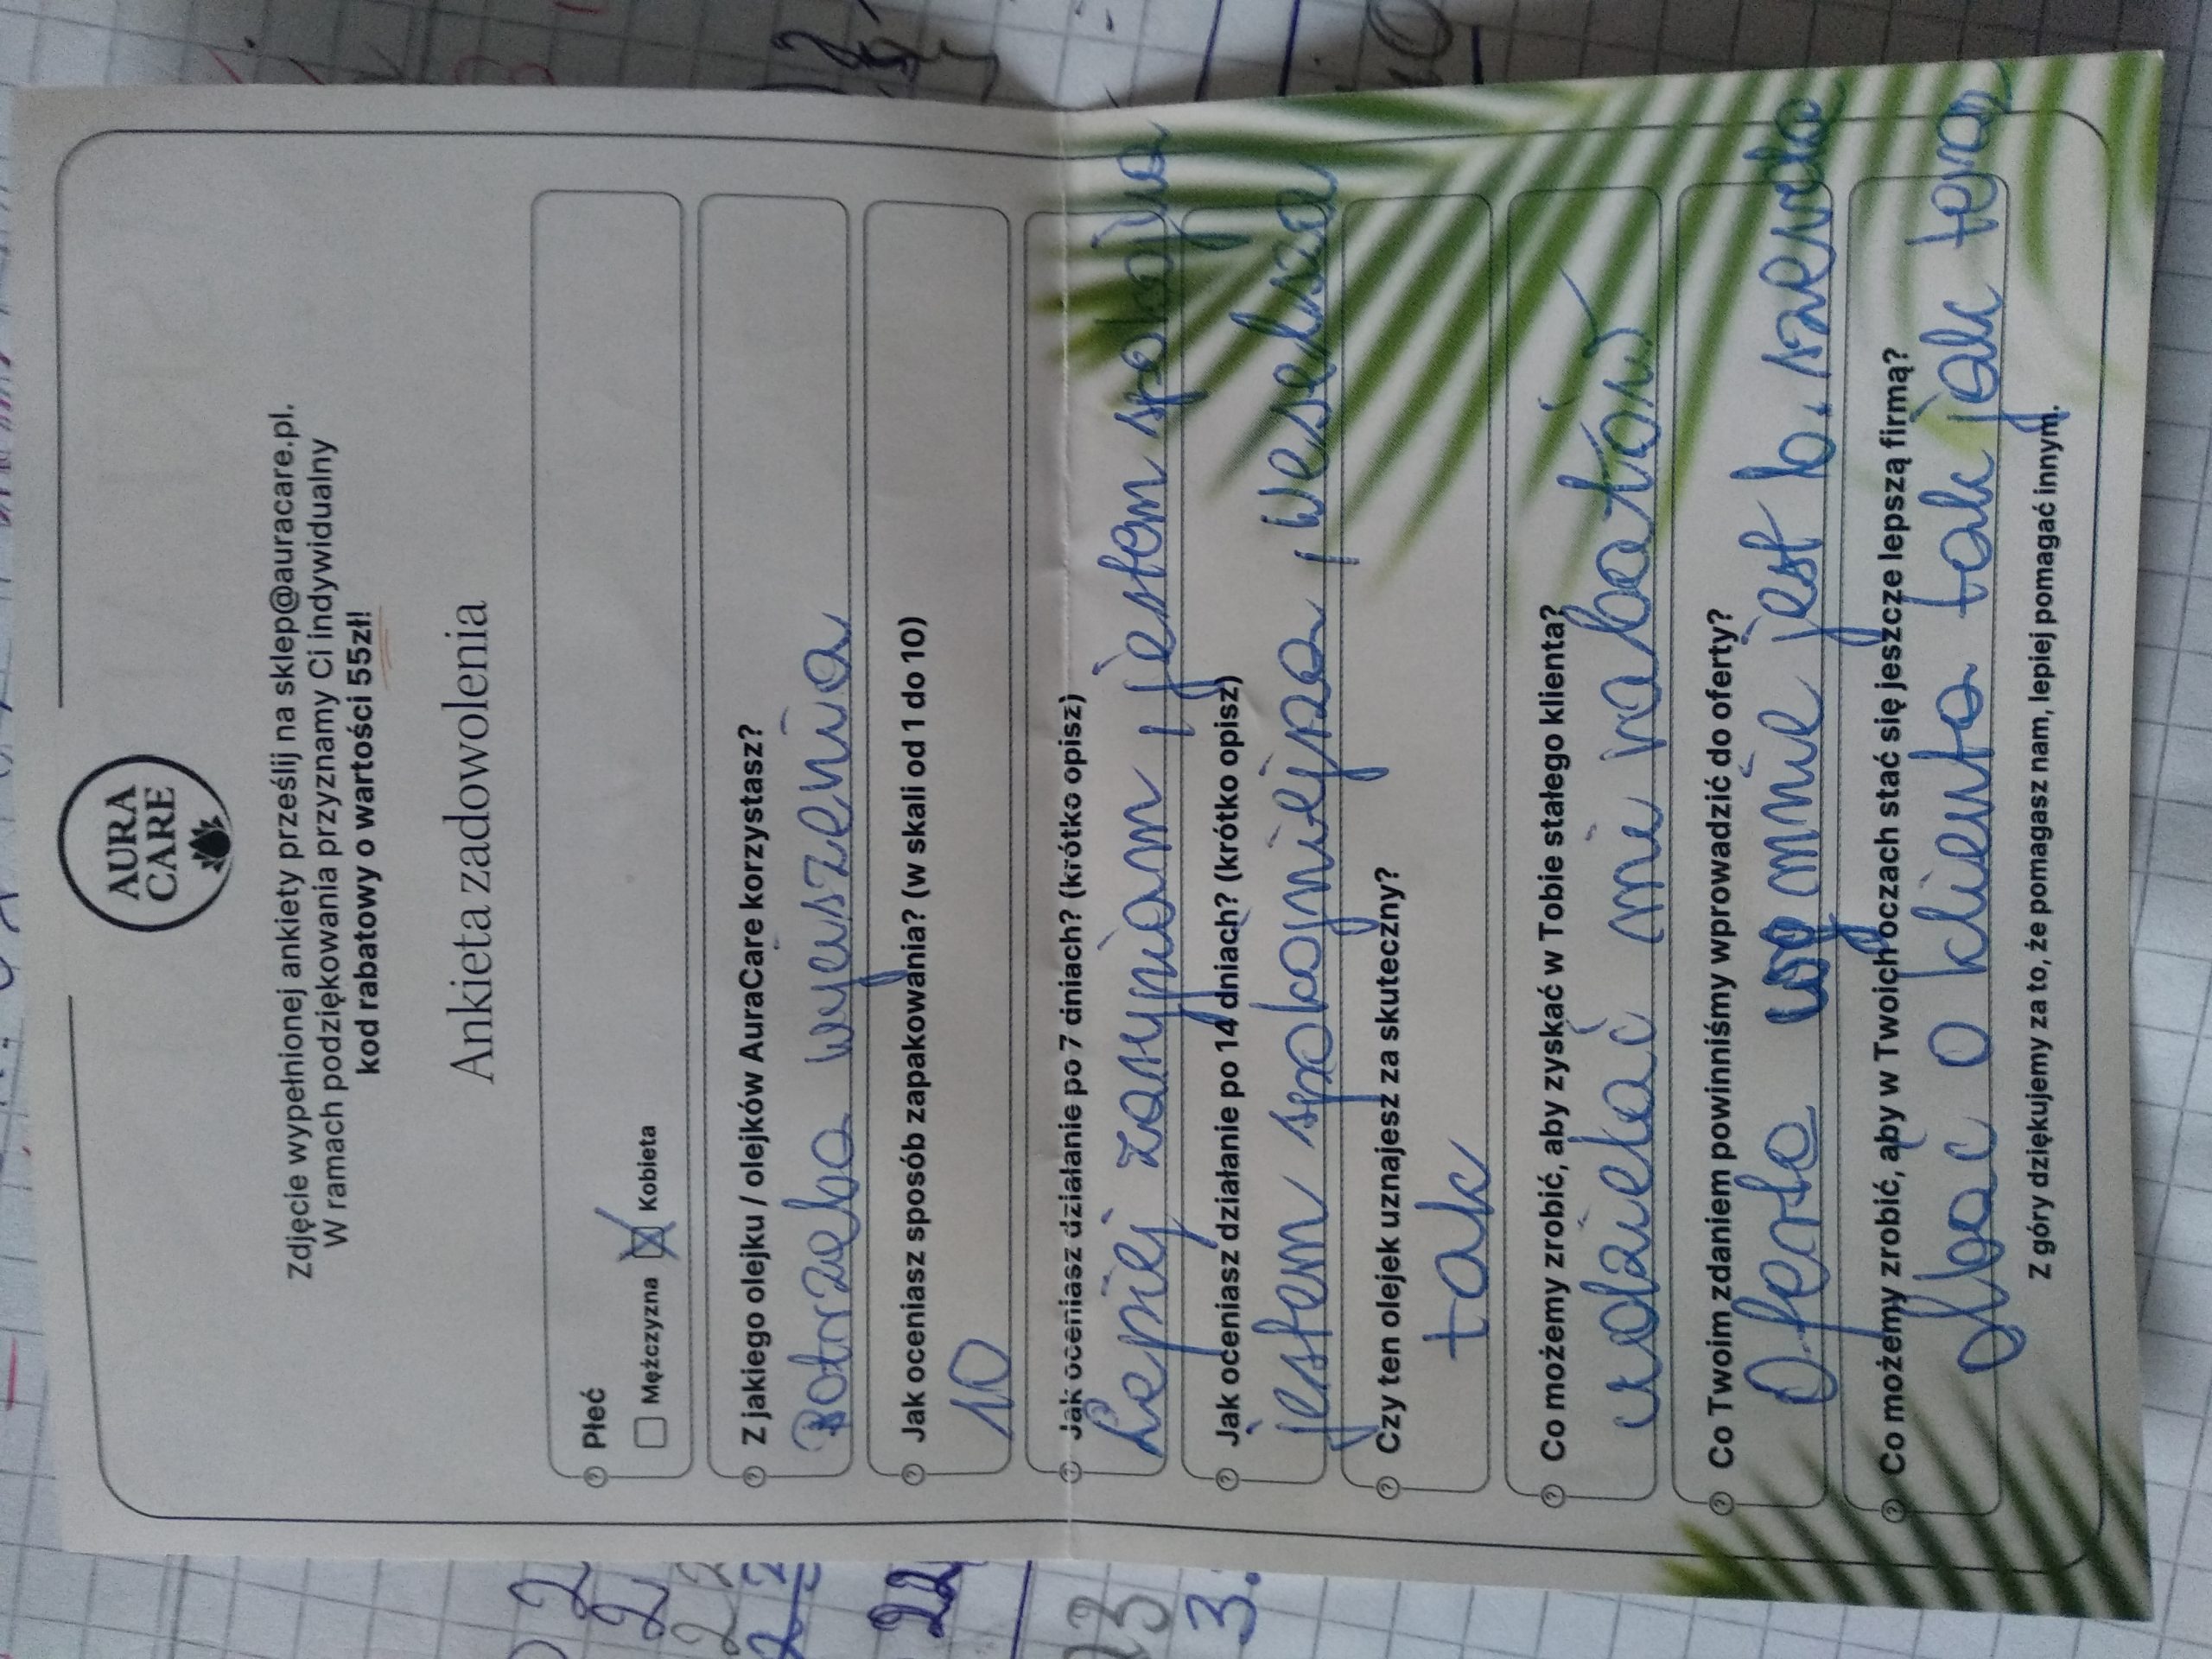 AURA
CARE
Zdjęcie wypełnionej ankiety prześlij na sklep@auracare.pl.
W ramach podziękowania przyznamy Ci indywidualny
kod rabatowy o wartości 55zł!
Ankieta zadowolenia
Płeć
Mężczyzna Kobieta
Z jakiego olejku / olejków AuraCare korzystasz?
Potrzeba wyciszenia
Jak oceniasz sposób zapakowania? (w skali od 1 do 10)
10
Jak oceniasz działanie po 7 dniach? (krótko opisz)
Lepiej zasypiam, jestem spokojna
Jak oceniasz działanie po 14 dniach? (krótko opisz)
jestem spokojniejsza, weselsza
Czy ten olejek uznajesz za skuteczny?
tak
Co możemy zrobić, aby zyskać w Tobie stałego klienta?
udzielać mi rabatów
Co Twoim zdaniem powinniśmy wprowadzić do oferty?
Oferta wg mnie jest b. szeroka
Co możemy zrobić, aby w Twoich oczach stać się jeszcze lepszą firmą?
dbać o klienta tak jak teraz
Z góry dziękujemy za to, że pomagasz nam, lepiej pomagać innym.
22
23
3.